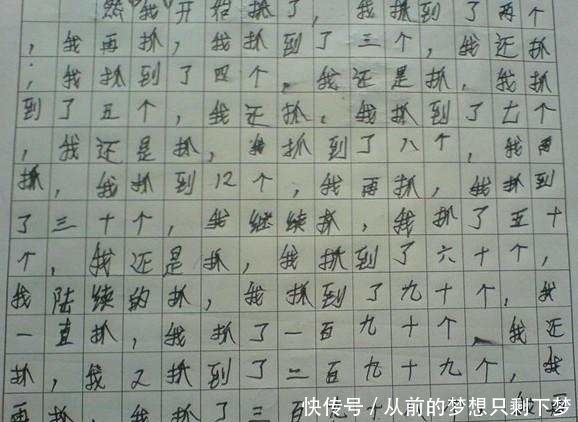 然我开始抓了，我抓到了两个
，我再抓，我抓到了三个，我还抓
，我抓到了四个，我还是抓，我抓
到了五个，我还抓，我抓到了七个
，我还是抓，我抓到了八个，我再
抓，我抓到12个，我再抓，我抓到
了三十个，我继续抓，我抓了五十
个，我还是抓，我抓到了六十个，
我陆续的抓，我抓到了九十个，我
一直抓，我抓了一百九十个，我还
抓，我又抓到了二百九十九个，我
再抓，我抓了三百九十
快传号/从前的梦想只剩下梦